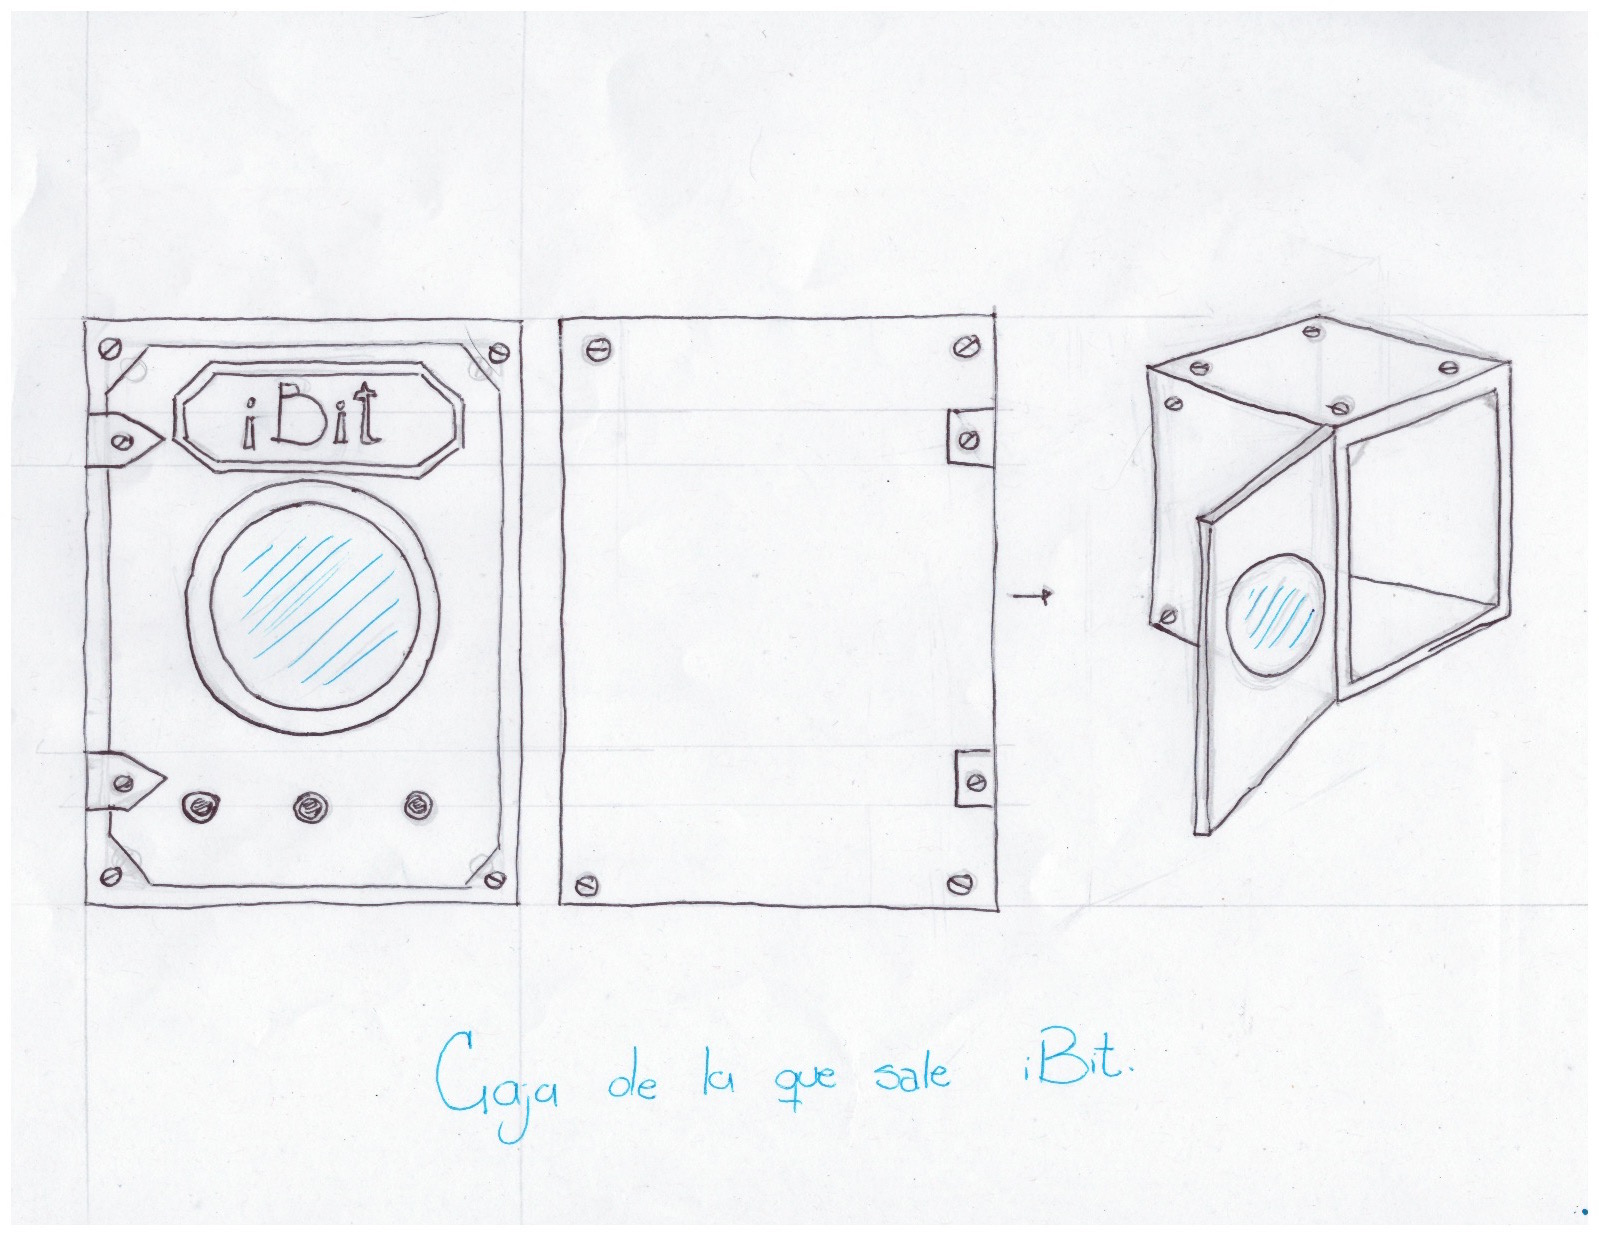 iBit
Caja de la que sale iBit.